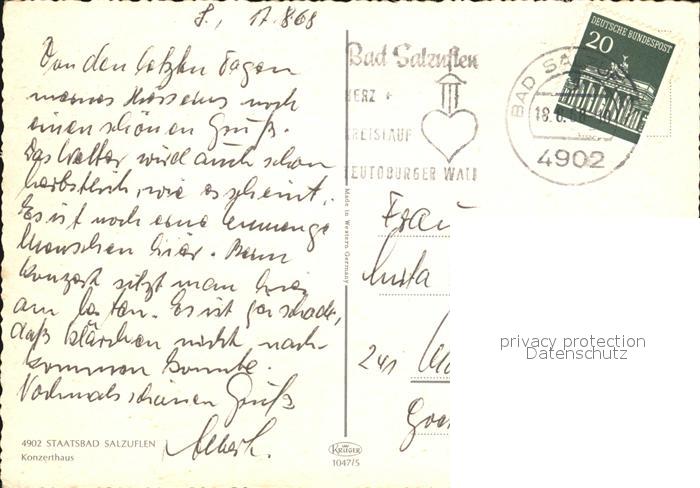 S., 17.8.68
Von den letzten Tagen
meines Hierseins noch
einen schönen Gruß.
Das Wetter wird auch schon
herbstlich, wie es scheint.
Es ist noch eine enmenge
Menschen hier. Beim
Konzert sitzt man hier
am besten. Es ist ja schade,
daß Klärchen nicht nach-
kommen konnte.
Nochmals schönen Gruß
Albert.
4902 STAATSBAD SALZUFLEN
Konzerthaus
Made in Western Germany
KRÜGER
1047/5
Bad Salzuflen
HERZ +
KREISLAUF
TEUTOBURGER WALD
BAD SALZ
18.8.68
4902
DEUTSCHE BUNDESPOST
20
Frau
241
privacy protection
Datenschutz